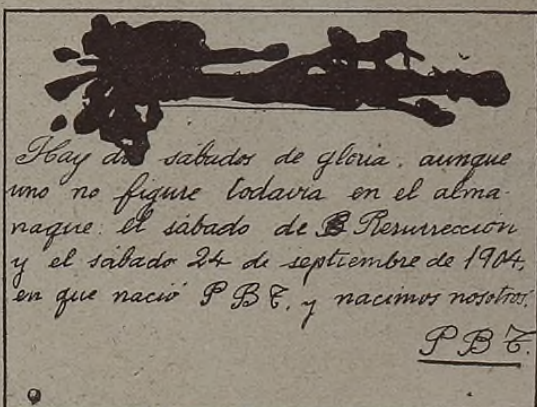 Hay dos sabados de gloria, aunque
uno no figure todavia en el alma-
naque: el sábado de Resurrección
y el sábado 24 de septiembre de 1904,
en que nació P B T. y nacimos nosotros.
P B T.